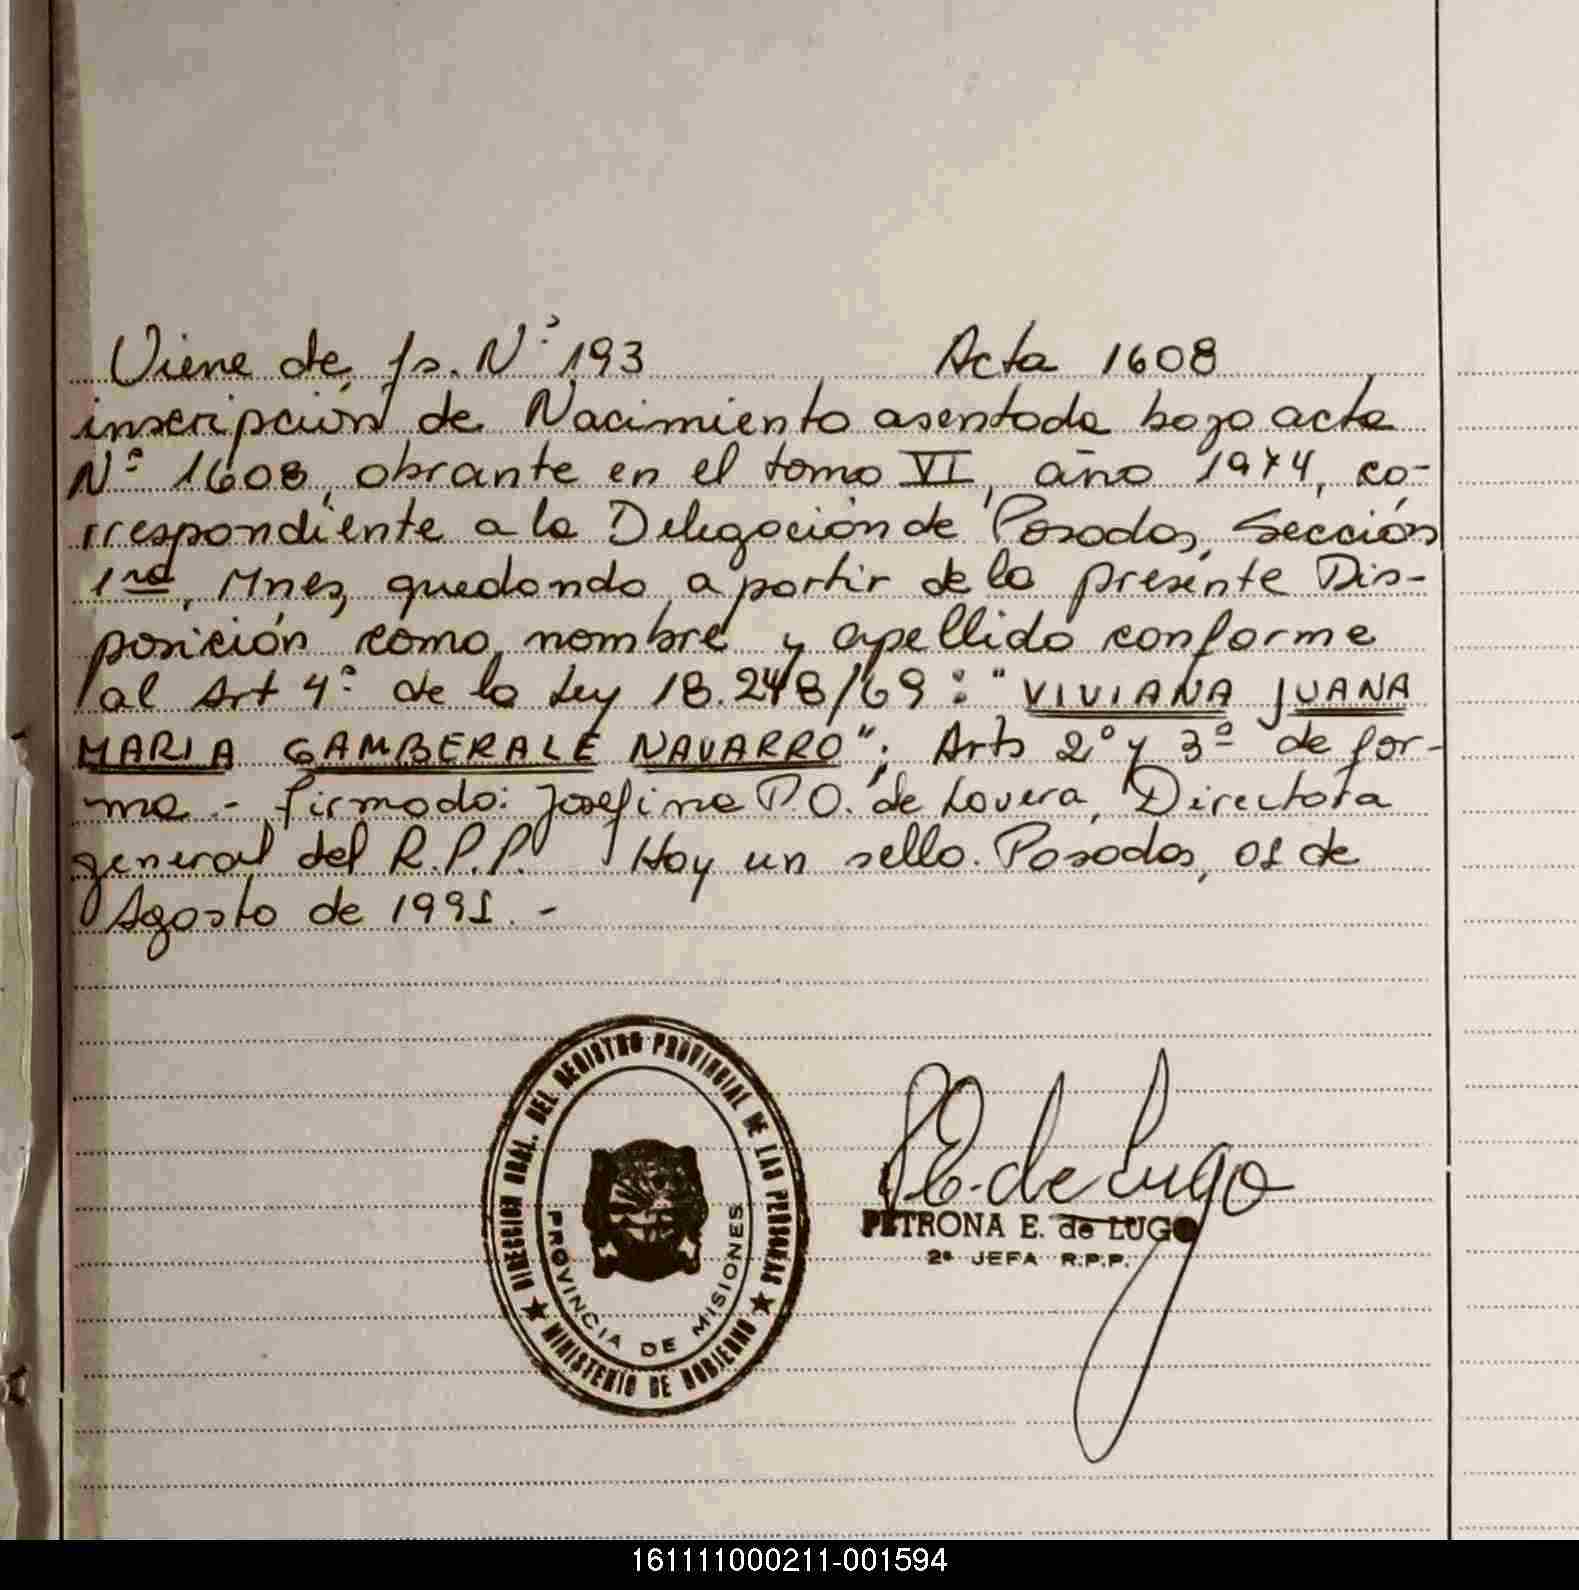 Viene de fs. Nº 193 Acta 1608
inscripción de Nacimiento asentada bajo acta
Nº 1608, obrante en el tomo VI, año 1974, co-
rrespondiente a la Delegación de Posadas, Sección
1ra, Mnes, quedando a partir de la presente Dis-
posición como nombre y apellido conforme
al Art 4º de la Ley 18.248/69: "VIVIANA JUANA
MARIA GAMBERALE NAVARRO"; Arts 2º y 3º de for-
ma - firmado: Josefina P.O. de Lovera, Directora
general del R.P.P. Hay un sello. Posadas, 01 de
Agosto de 1991.-
DIRECCION GRAL. DEL REGISTRO PROVINCIAL DE LAS PERSONAS
PROVINCIA DE MISIONES
★ MINISTERIO DE GOBIERNO ★
P.E. de Lugo
PETRONA E. de LUGO
2ª JEFA R.P.P.
161111000211-001594